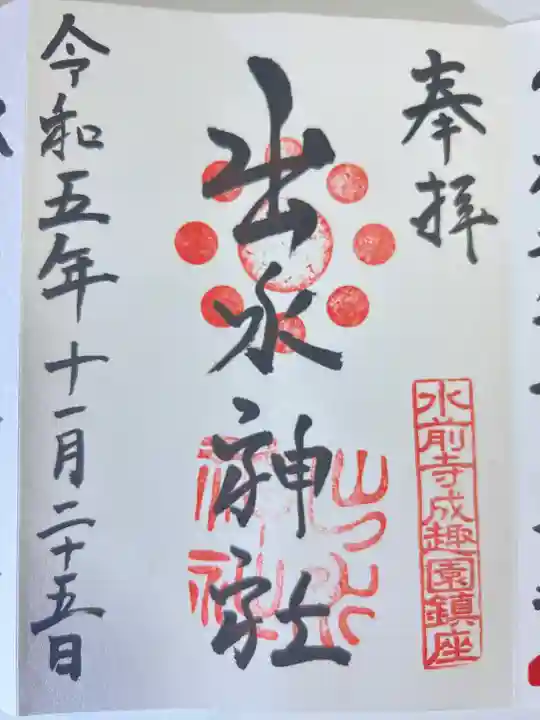 奉拝
水前寺成趣園鎮座
出水神社
令和五年十一月二十五日